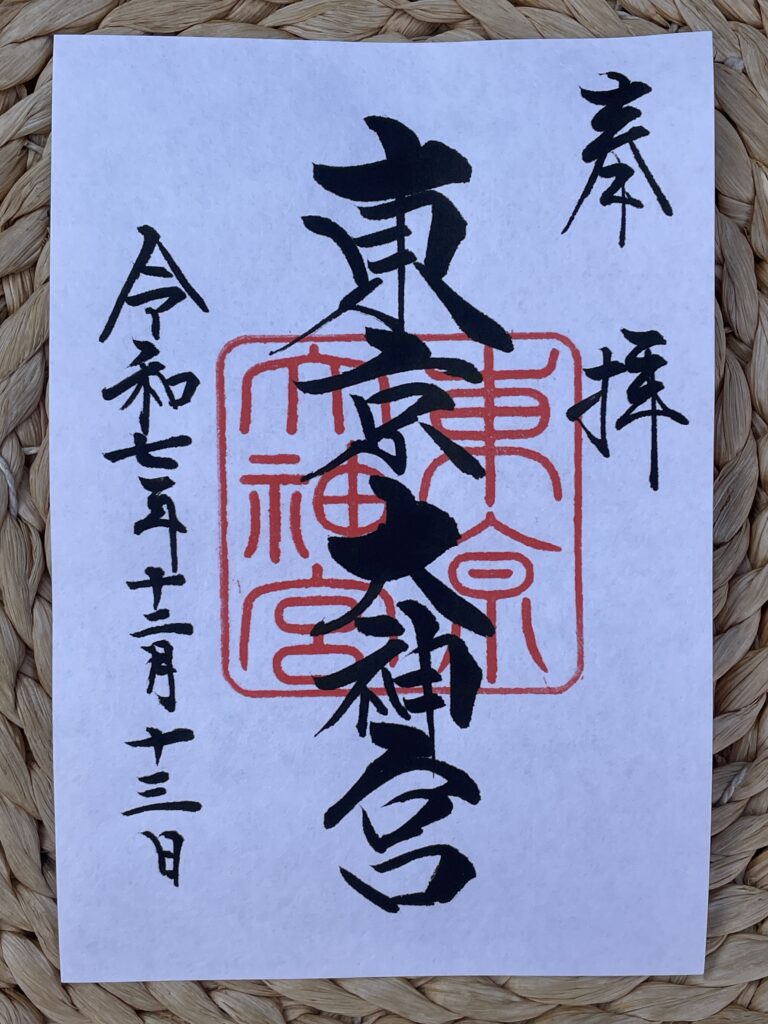 奉拝
東京大神宮
東京
大神宮
令和七年十二月十三日